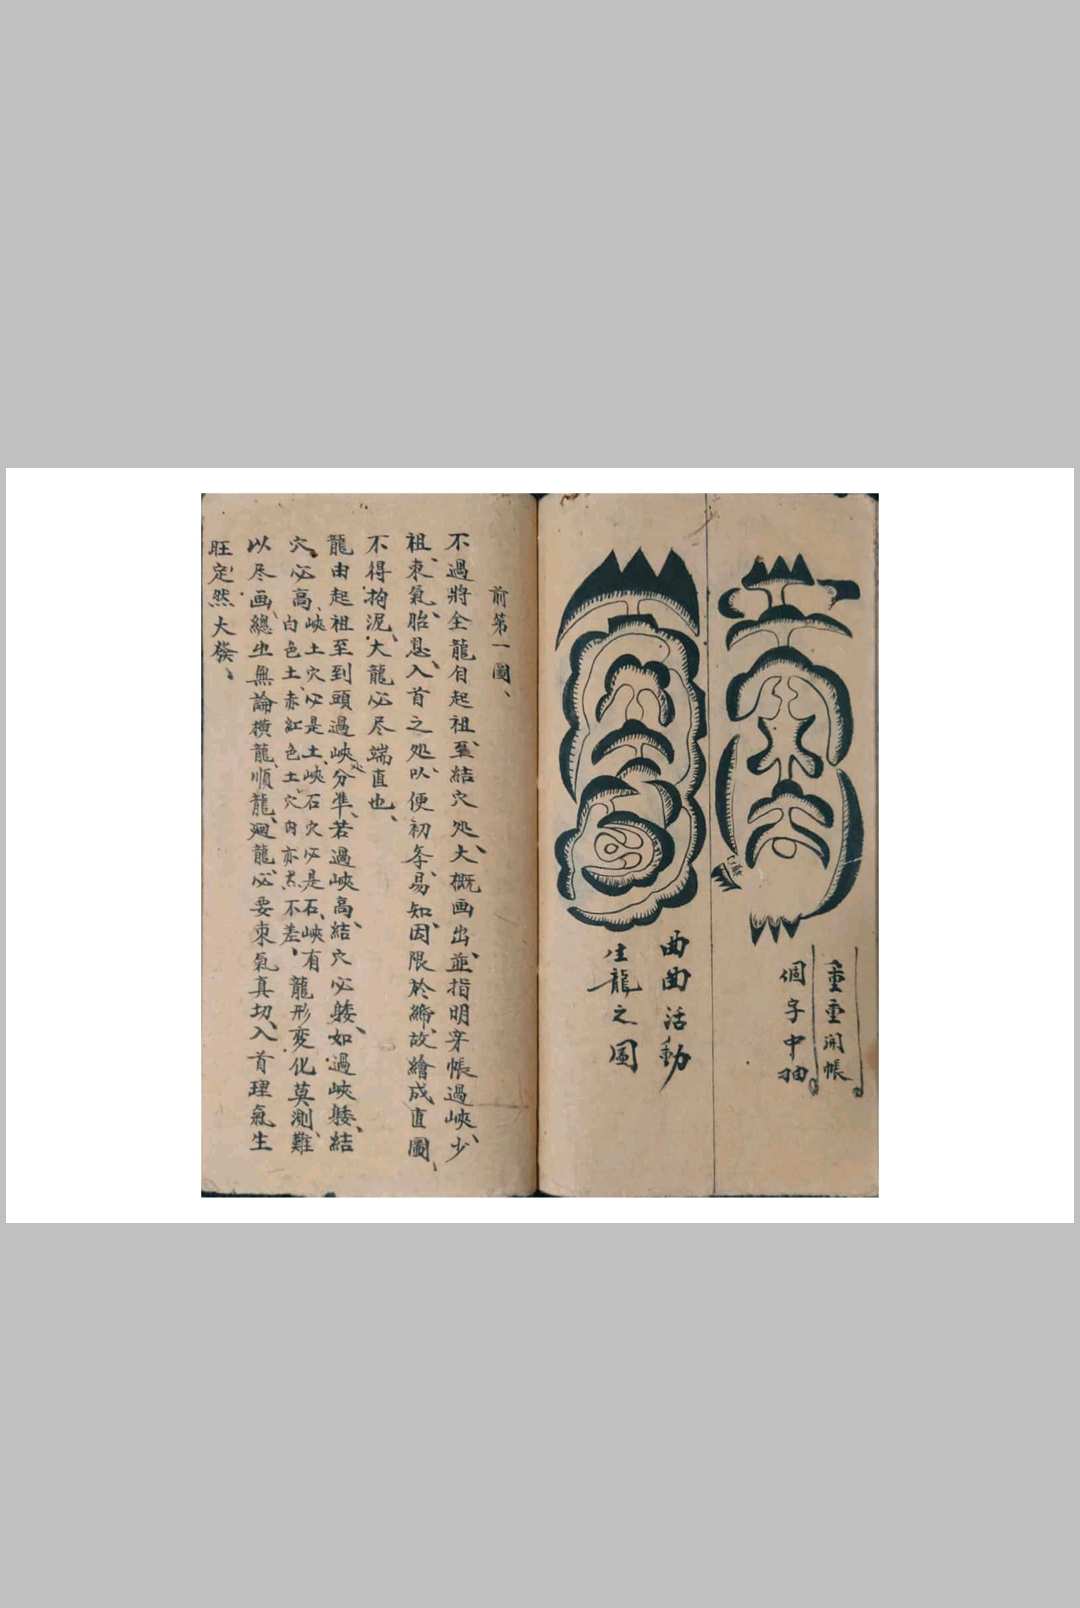 重重開帳
個字中抽
曲曲活動
生龍之圖
前第一圖、
不過將全龍自起祖、至結穴处、大概画出、並指明穿帳過峽、少
祖、束氣、胎息、入首之处、以便初条、易知、因限於締、故繪成直圖、
不得拘泥、大龍必尽端直也、
龍由起祖至到頭過峽处分準、若過峽高、結穴必矮、如過峽矮、結
穴必高、峽土穴必是土、峽石穴必是石、峽有
白色土、赤紅色土穴内亦然不差、龍形変化莫測、難
以尽画、總出無論横龍、順龍、廻龍、必要束氣真切、入首理氣生
旺、定然大發、